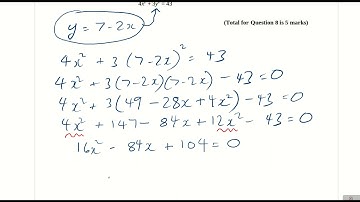 4x² + 3y² = 43
y = 7-2x
(Total for Question 8 is 5 marks)
4x² + 3(7-2x)² = 43
4x² + 3(7-2x)(7-2x) - 43 = 0
4x² + 3(49 - 28x + 4x²) - 43 = 0
4x² + 147 - 84x + 12x² - 43 = 0
16x² - 84x + 104 = 0